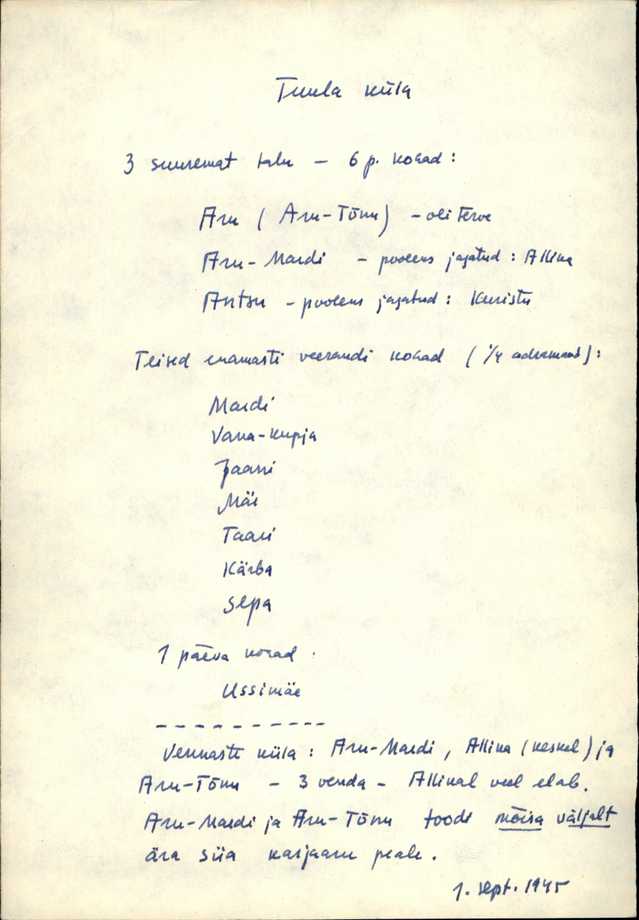 Tuula küla
3 suuremat talu – 6 p. kohad:
Aru (Aru-Tõnu) – oli terve
Aru-Mardi – pooleks jagatud: Allika
Antsu – pooleks jagatud: Kuristu
Teised enamasti veerandi kohad (1/4 adramaad):
Mardi
Vana-kupja
Jaani
Mäe
Taari
Kärba
Sepa
1 päeva kohad.
Ussimäe
Vennaste küla: Aru-Mardi, Allika (keskel) ja
Aru-Tõnu – 3 venda – Allikal veel elab.
Aru-Mardi ja Aru-Tõnu toodi mõisa väljalt
ära siia karjaaru peale.
1. sept. 1945